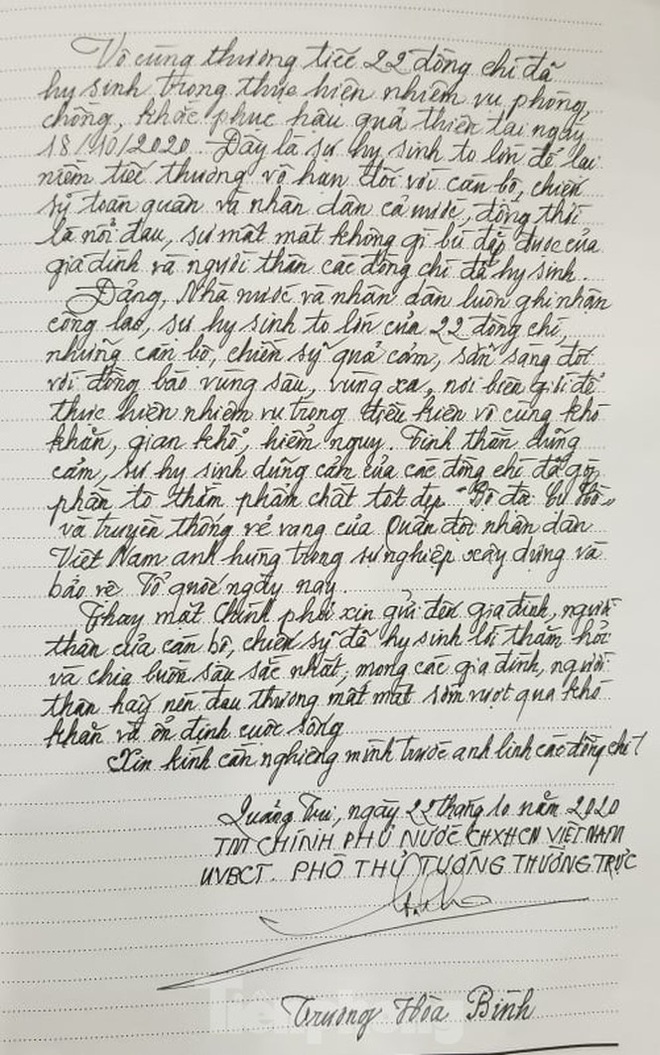 Vô cùng thương tiếc 22 đồng chí đã
hy sinh trong thực hiện nhiệm vụ phòng,
chống, khắc phục hậu quả thiên tai ngày
18/10/2020. Đây là sự hy sinh to lớn để lại
niềm tiếc thương vô hạn đối với cán bộ, chiến
sỹ toàn quân và nhân dân cả nước, đồng thời
là nỗi đau, sự mất mát không gì bù đắp được của
gia đình và người thân các đồng chí đã hy sinh.
Đảng, Nhà nước và nhân dân luôn ghi nhận
công lao, sự hy sinh to lớn của 22 đồng chí,
những cán bộ, chiến sỹ quả cảm, sẵn sàng đến
với đồng bào vùng sâu, vùng xa, nơi biên giới để
thực hiện nhiệm vụ trong điều kiện vô cùng khó
khăn, gian khổ, hiểm nguy. Tinh thần dũng
cảm, sự hy sinh dũng cảm của các đồng chí đã góp
phần tô thắm phẩm chất tốt đẹp "Bộ đội Cụ Hồ"
và truyền thống vẻ vang của Quân đội nhân dân
Việt Nam anh hùng trong sự nghiệp xây dựng và
bảo vệ Tổ quốc ngày nay.
Thay mặt Chính phủ xin gửi đến gia đình, người
thân của cán bộ, chiến sỹ đã hy sinh lời thăm hỏi
và chia buồn sâu sắc nhất, mong các gia đình, người
thân hãy nén đau thương mất mát sớm vượt qua khó
khăn và ổn định cuộc sống
Xin kính cẩn nghiêng mình trước anh linh các đồng chí!
Quảng Trị, ngày 22 tháng 10 năm 2020
TM CHÍNH PHỦ NƯỚC CHXHCN VIỆT NAM
UVBCT. PHÓ THỦ TƯỚNG THƯỜNG TRỰC
Trương Hòa Bình
Tiền phong